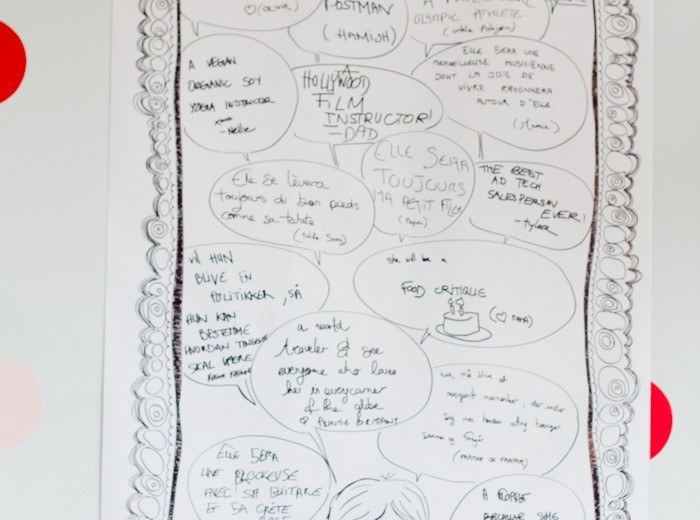 O(LIVIA)
POSTMAN
(HAMISH)
OLYMPIC ATHLETE
A VEGAN
ORGANIC SOY
YOGA INSTRUCTOR
- Nellie
HOLLYWOOD
FILM
INSTRUCTOR!
- DAD
ELLE SERA UNE
MERVEILLEUSE MUSICIENNE
DONT LA JOIE DE
VIVRE RAYONNERA
AUTOUR D'ELLE
(Mamie)
Elle se lèvera
toujours du bon pieds
comme sa tatate
ELLE SERA
TOUJOURS
MA PETIT FILLE
(Papa)
THE BEST
AD TECH
SALESPERSON
EVER!
- TYLER
Vil HUN
BLIVE EN
POLITIKKER, SÅ
HUN KAN
BESTEMME
HVORDAN TINGENE
SKAL VÆRE
she will be a
FOOD CRITIQUE
(♡ MAMA)
a world
traveler & see
everyone who loves
her in every corner
of the globe
♡ AUNTIE BRITTANY
Hun må blive et
menneske, der
og
ELLE SERA
UNE ROCKEUSE
AVEC SA GUITARE
ET SA CRÊTE
A
BECAUSE SHE